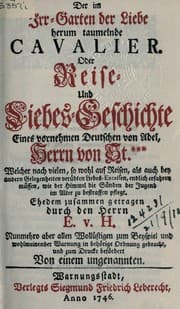 Der im
Irr-Garten der Liebe
herum taumelnde
CAVALIER.
Oder
Reise-
Und
Liebes-Geschichte
Eines vornehmen Deutschen von Adel,
Herrn von St.***
Welcher nach vielen, so wohl auf Reisen, als auch bey
andern Gelegenheiten verübten Liebes-Excessen, endlich erfahren
müssen, wie der Himmel die Sünden der Jugend
im Alter zu bestraffen pflegt.
Ehedem zusammen getragen
durch den Herrn
E. v. H.
Nunmehro aber allen Wollüstigen zum Beyspiel und
wohlmeinender Warnung in behörige Ordnung gebracht,
und zum Drucke befördert
Von einem ungenannten.
Warnungsstadt,
Verlegts Siegmund Friedrich Leberecht,
Anno 1746.